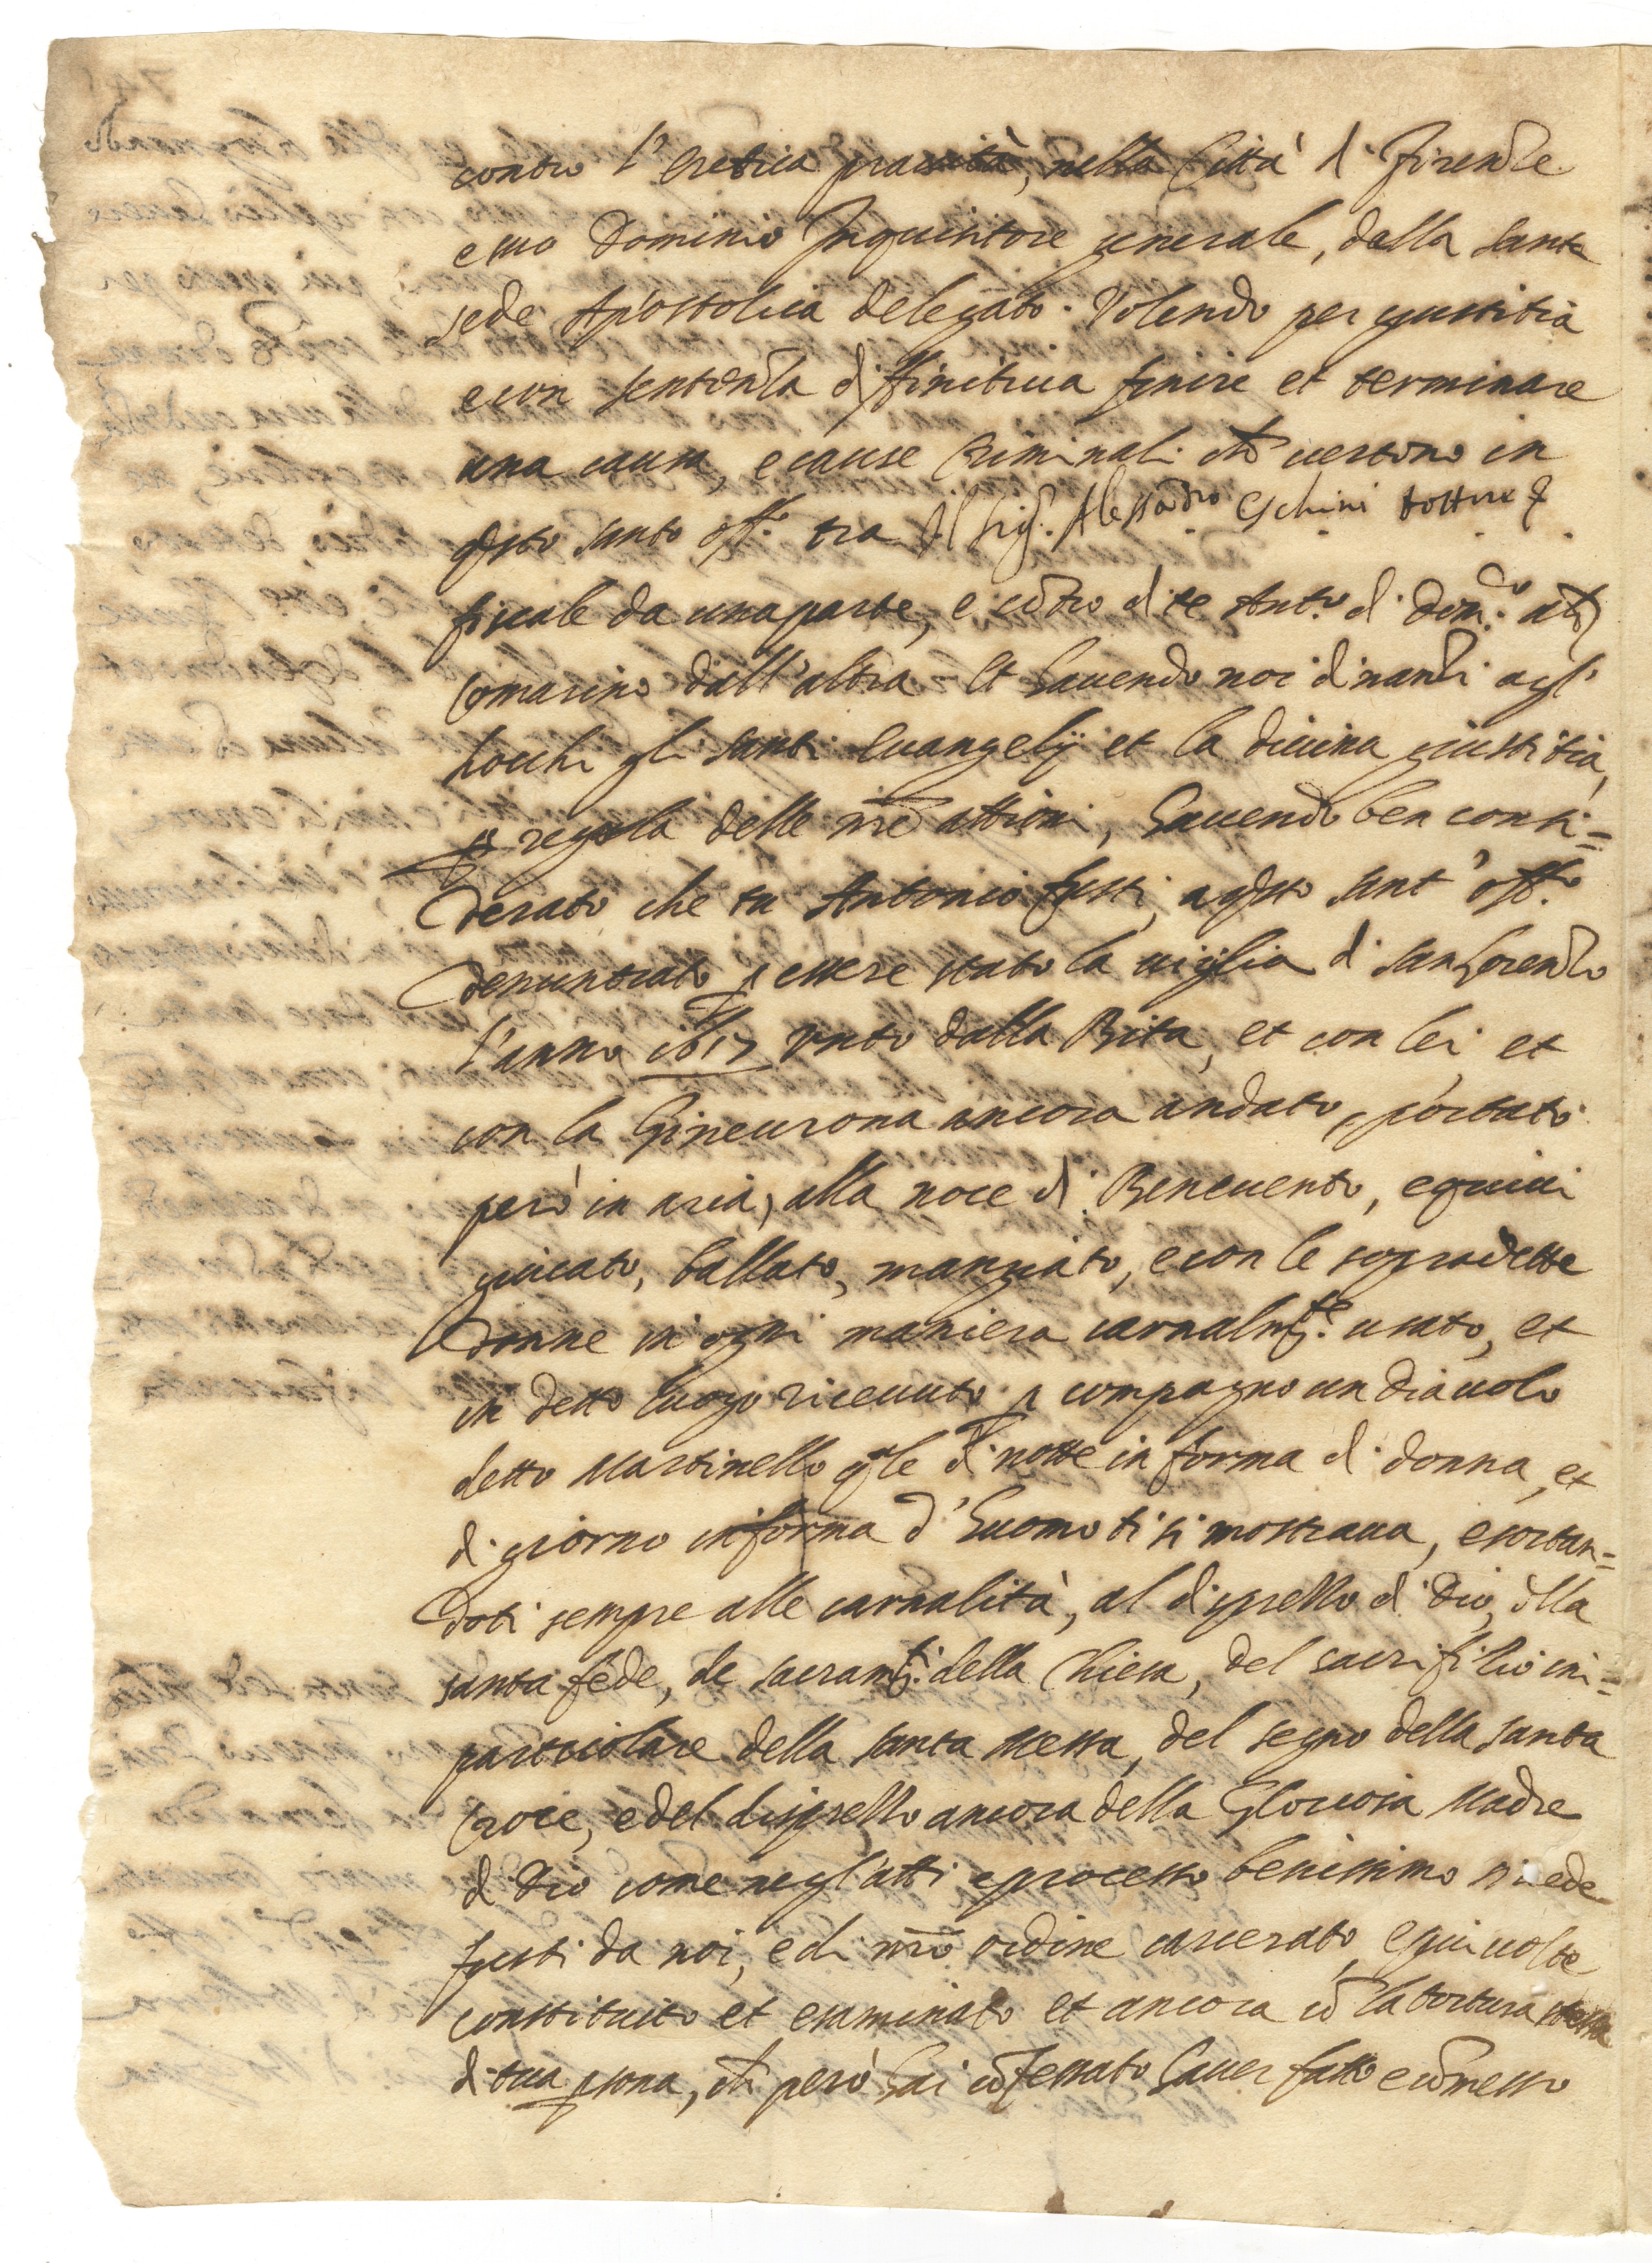 contro l'eretica pravità, nella Città di Firenze
e suo Dominio Inquisitore generale, dalla santa
sede Apostolica delegato. Volendo per giustitia
e con sentenza diffinitiva finire et terminare
una causa, e cause criminali che vertono in
questo santo off.o tra Il Sig.r Alessandro dottore
fiscale da una parte, e contro di te Ant.o di Dom.co
dall'altra. Et havendo noi dinanzi agl'
hocchi gli santi Evangelij et la divina giustitia,
p regola delle nre attioni, havendo ben consi=
derato che tu Antonio fusti, a questo sant'off.o
denuntiato p essere stato la vigilia di San Lorenzo
l'anno 1617 unto dalla Rita, et con lei et
con la Ginevrona ancora andato, portato
però in aria, alla noce di Benevento, e quivi
giucato, ballato, mangiato, e con le sopradette
Donne in ogni maniera carnalmte. usato, et
in detto luogo ricevuto p compagno un Diavolo
detto Martinello qle di notte in forma di donna, et
di giorno in forma d'huomo ti si mostrava, esortan=
doti sempre alle carnalità, al disprezzo di Dio, della
santa fede, de sacramti. della Chiesa, del sacrifitio in
particolare della santa Messa, del segno della santa
Croce, e del disprezzo ancora della Gloriosa Madre
di Dio come negl'atti e processo benissimo si vede
fusti da noi, e di nro ordine carcerato, e più volte
constituito et esaminato et ancora cō la tortura stessa
di tua psona, che però hai cōfessato haver fatto e cōmesso